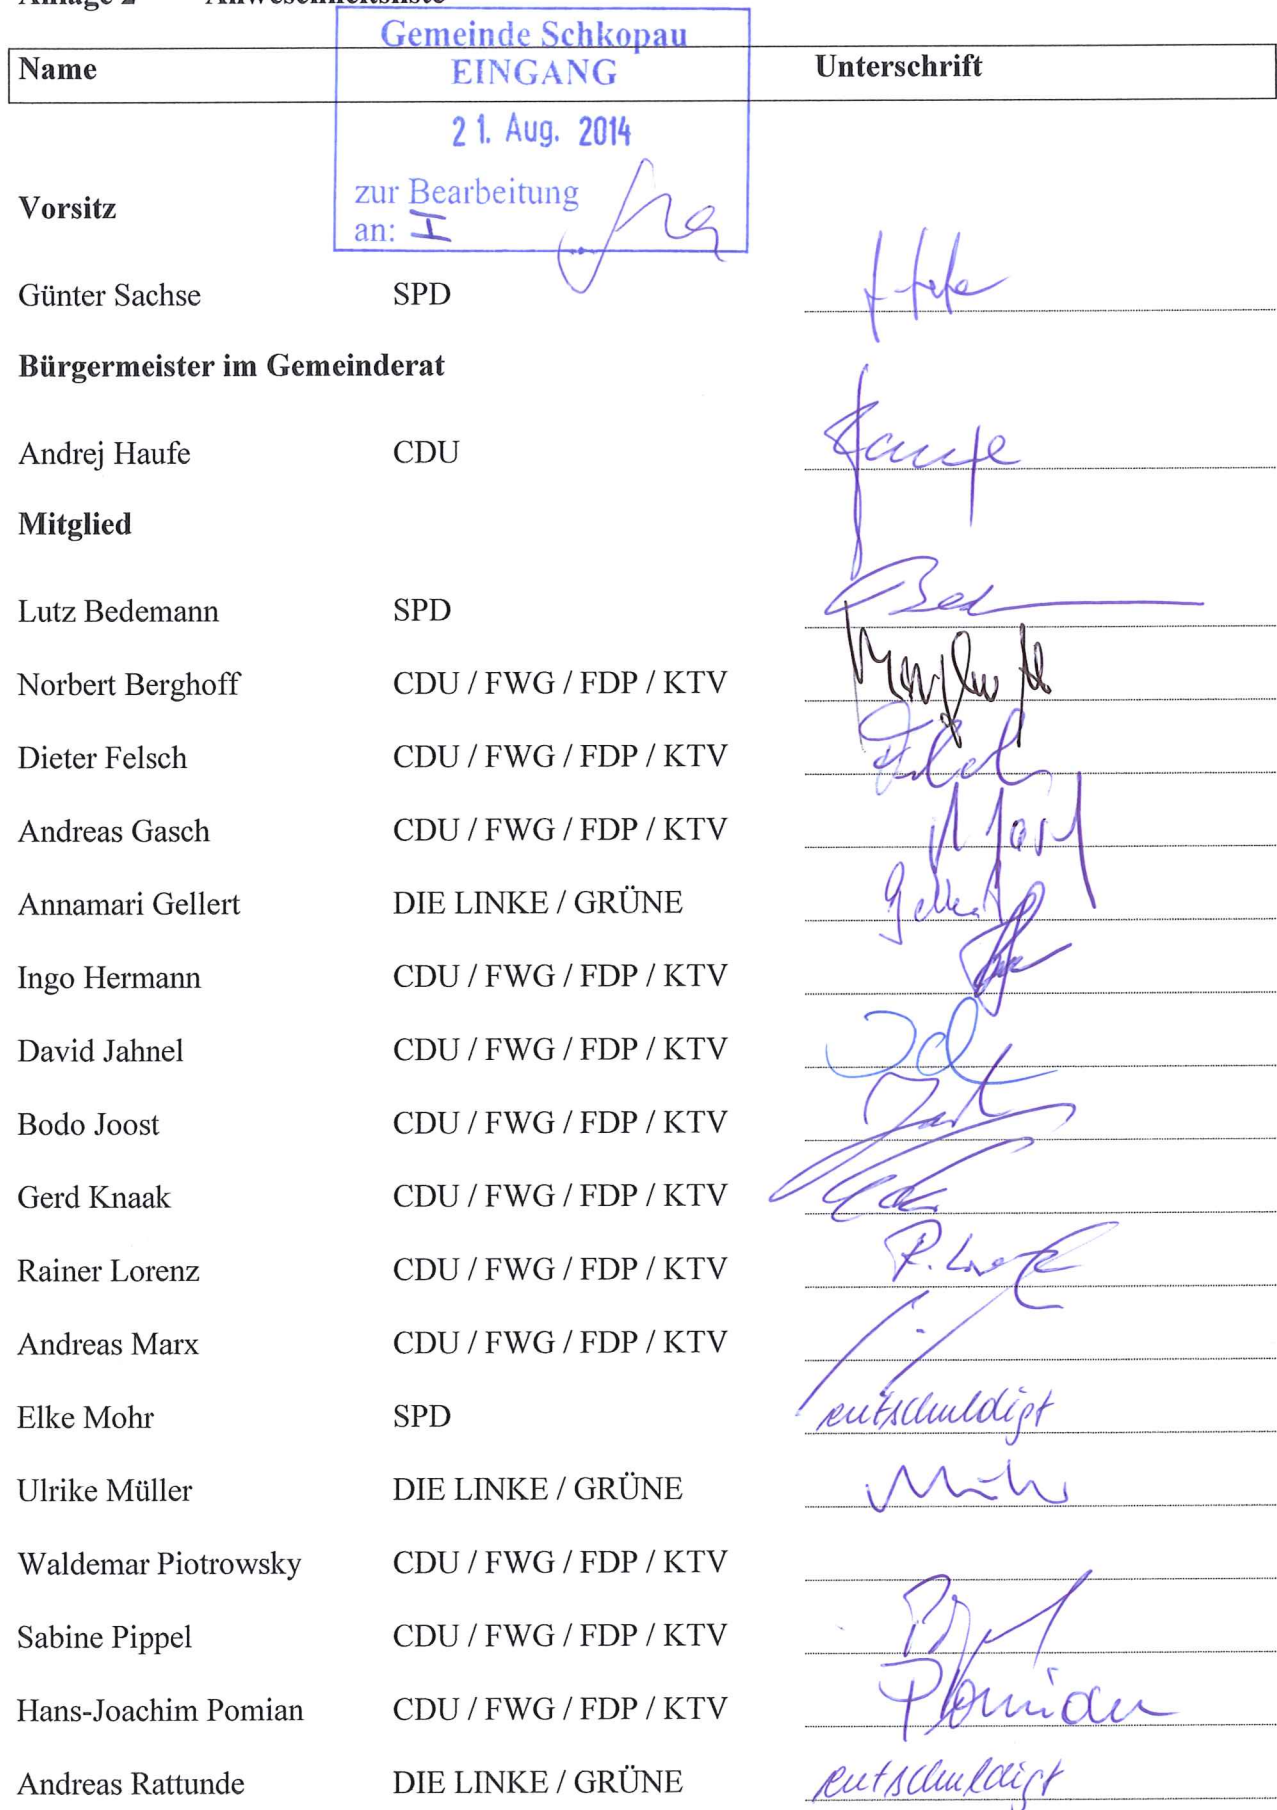 Anlage 2 Anwesenheitsliste
Gemeinde Schkopau
EINGANG
Name Unterschrift
21. Aug. 2014
zur Bearbeitung
an: I
Vorsitz
Günter Sachse SPD
Bürgermeister im Gemeinderat
Andrej Haufe CDU Haufe
Mitglied
Lutz Bedemann SPD
Norbert Berghoff CDU / FWG / FDP / KTV
Dieter Felsch CDU / FWG / FDP / KTV
Andreas Gasch CDU / FWG / FDP / KTV
Annamari Gellert DIE LINKE / GRÜNE
Ingo Hermann CDU / FWG / FDP / KTV
David Jahnel CDU / FWG / FDP / KTV
Bodo Joost CDU / FWG / FDP / KTV
Gerd Knaak CDU / FWG / FDP / KTV
Rainer Lorenz CDU / FWG / FDP / KTV
Andreas Marx CDU / FWG / FDP / KTV
Elke Mohr SPD entschuldigt
Ulrike Müller DIE LINKE / GRÜNE
Waldemar Piotrowsky CDU / FWG / FDP / KTV
Sabine Pippel CDU / FWG / FDP / KTV
Hans-Joachim Pomian CDU / FWG / FDP / KTV
Andreas Rattunde DIE LINKE / GRÜNE entschuldigt